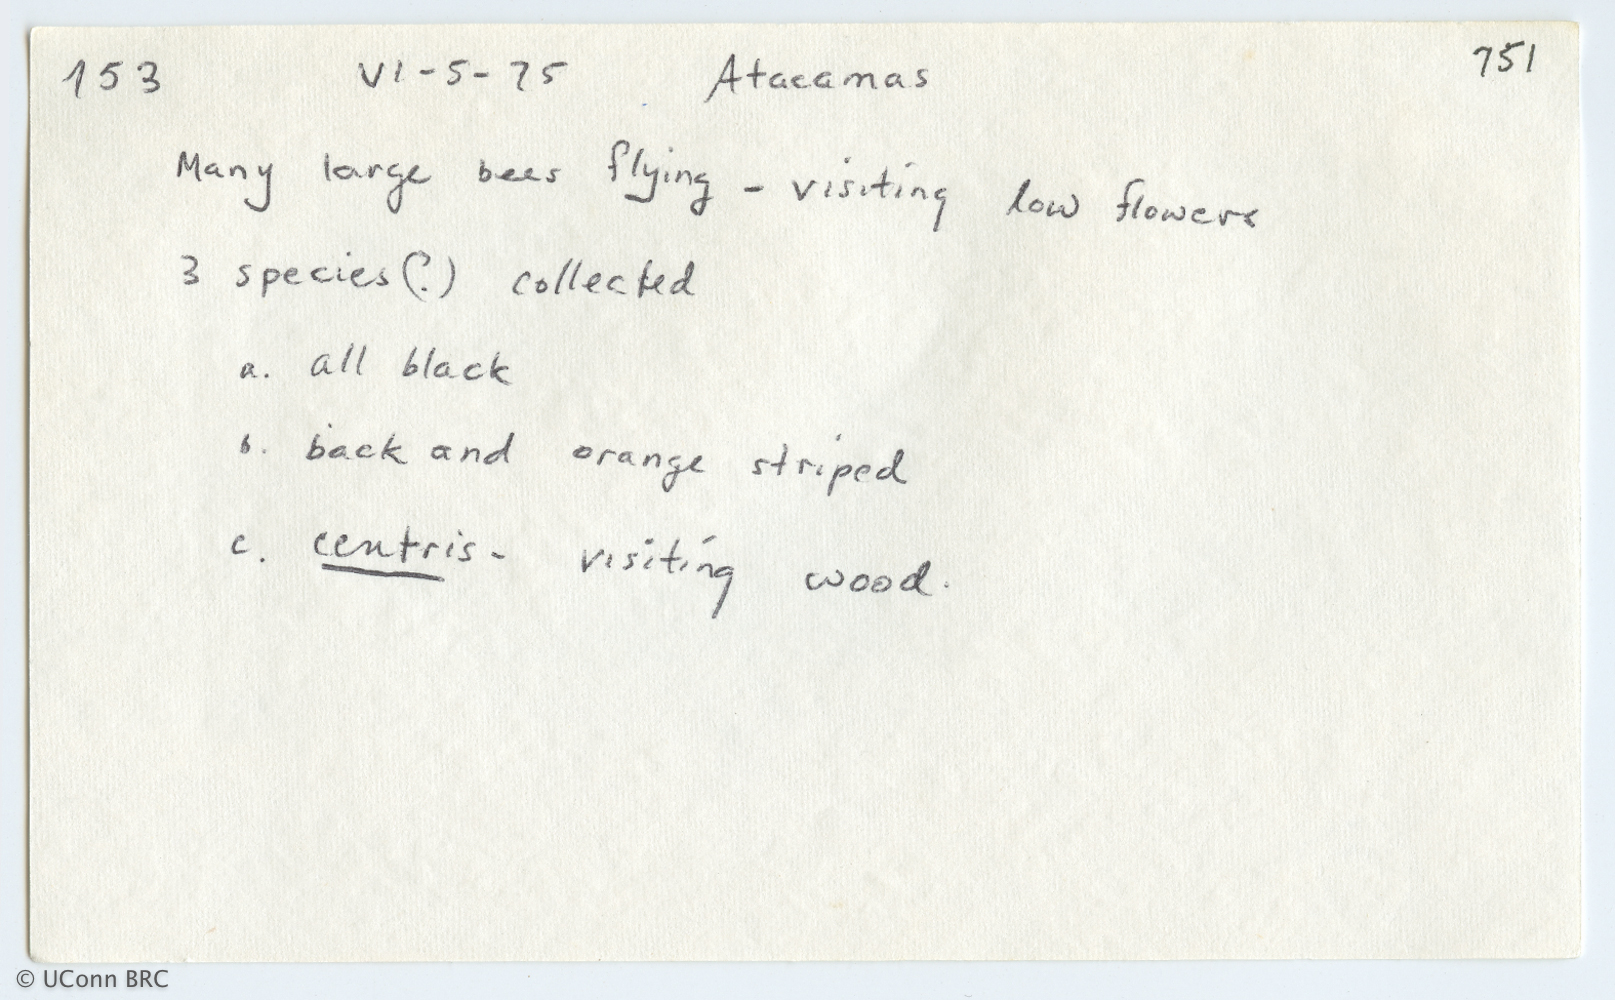 153 VI-5-75 Atacamas 751
Many large bees flying - visiting low flowers
3 species(?) collected
a. all black
b. back and orange striped
c. centris - visiting wood.
© UConn BRC